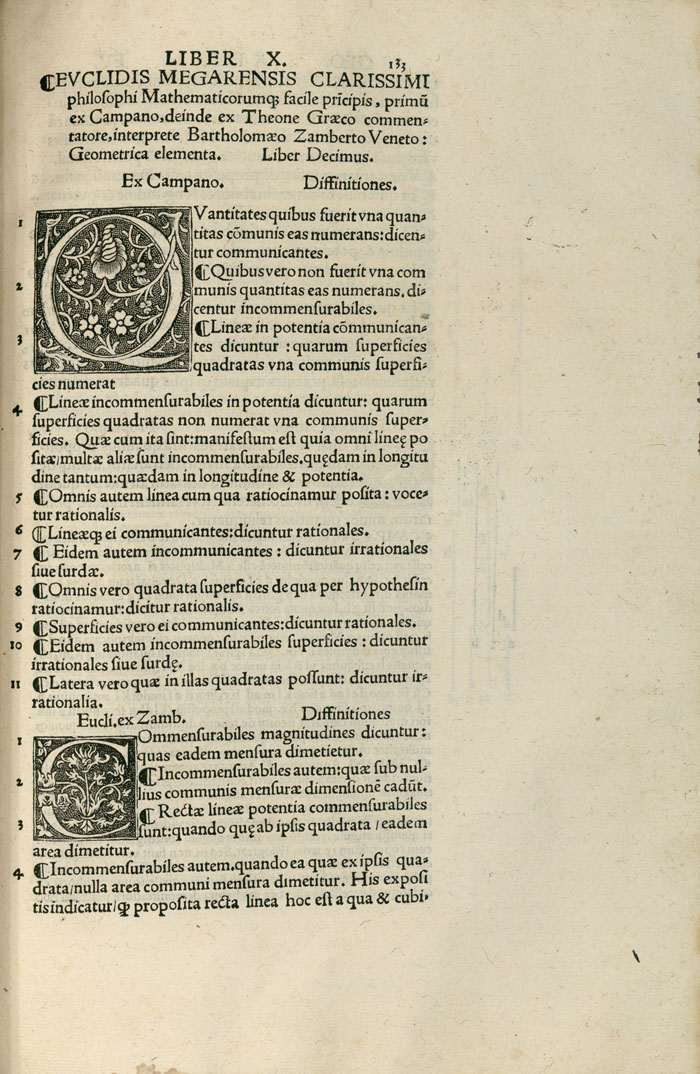 LIBER X. 133
⁋EVCLIDIS MEGARENSIS CLARISSIMI
philoſophi Mathematicorumqꝫ facile prīcipis, primū
ex Campano, deinde ex Theone Græco commen⸗
tatore, interprete Bartholomæo Zamberto Veneto:
Geometrica elementa. Liber Decimus.
Ex Campano. Diffinitiones.
1 QVantitates quibus fuerit vna quan⸗
titas cōmunis eas numerans: dicen⸗
tur communicantes.
2 ⁋Quibus vero non fuerit vna com
munis quantitas eas numerans, di⸗
centur incommenſurabiles.
3 ⁋Lineæ in potentia cōmunican⸗
tes dicuntur : quarum ſuperficies
quadratas vna communis ſuperfi⸗
cies numerat
4 ⁋Lineæ incommenſurabiles in potentia dicuntur: quarum
ſuperficies quadratas non numerat vna communis ſuper⸗
ficies. Quæ cum ita ſint: manifeſtum eſt quia omni lineę po
ſitæ/multæ aliæ ſunt incommenſurabiles, quędam in longitu
dine tantum: quædam in longitudine & potentia.
5 ⁋Omnis autem linea cum qua ratiocinamur poſita : voce⸗
tur rationalis.
6 ⁋Lineæqꝫ ei communicantes: dicuntur rationales.
7 ⁋ Eidem autem incommunicantes : dicuntur irrationales
ſiue ſurdæ.
8 ⁋Omnis vero quadrata ſuperficies de qua per hypotheſin
ratiocinamur: dicitur rationalis.
9 ⁋Superficies vero ei communicantes: dicuntur rationales.
10 ⁋Eidem autem incommenſurabiles ſuperficies : dicuntur
irrationales ſiue ſurdę.
11 ⁋Latera vero quæ in illas quadratas poſſunt: dicuntur ir⸗
rationalia.
Eucli. ex Zamb. Diffinitiones
1 COmmenſurabiles magnitudines dicuntur:
quas eadem menſura dimetietur.
2 ⁋Incommenſurabiles autem: quæ ſub nul⸗
lius communis menſuræ dimenſionē cadūt.
3 ⁋ Rectæ lineæ potentia commenſurabiles
ſunt: quando quę ab ipſis quadrata / eadem
area dimetitur.
4 ⁋Incommenſurabiles autem, quando ea quæ ex ipſis qua⸗
drata/nulla area communi menſura dimetitur. His expoſi
tis indicatur/ꝙ propoſita recta linea hoc eſt a qua & cubi⸗